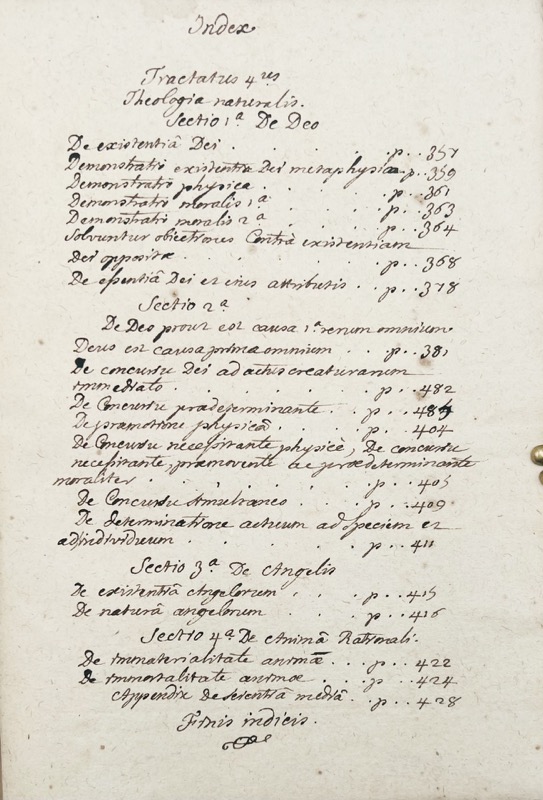 Index
Tractatus 4us
Theologia naturalis.
Sectio 1a De Deo
De existentiâ Dei . . . . . p. . 357
Demonstratio existentiæ Dei metaphysica p. . 359
Demonstratio physica . . . . p. . 361
Demonstratio moralis 1a . . . . p. . 363
Demonstratio moralis 2a . . . . p. . 364
Solvuntur obiectiones Contrà existentiam
Dei oppositæ . . . . . p. . 368
De essentiâ Dei et eius attributis . . p. . 378
Sectio 2a
De Deo prout est causa 1a rerum omnium.
Deus est causa prima omnium . . . p. . 381
De concursu Dei ad actus creaturarum
immediato . . . . . p. . 482
De Concursu prædeterminante . . . p. .
De præmotione physicâ . . . . p. . 404
De Concursu necessitante physicè, De concursu
necessitante, præmovente ac prædeterminante
moraliter . . . . . p. . 405
De Concursu simultaneo . . . . p. . 409
De determinatione actuum ad speciem et
ad individuum . . . . p. . 411
Sectio 3a De Angelis
De existentiâ Angelorum . . . p. . 415
De naturâ angelorum . . . p. . 416
Sectio 4a De Animâ Rationali.
De immaterialitate animæ . . . p. . 422
De immortalitate animæ . . . p. . 424
Appendix de scientiâ mediâ . . p. . 428
Finis indicis.